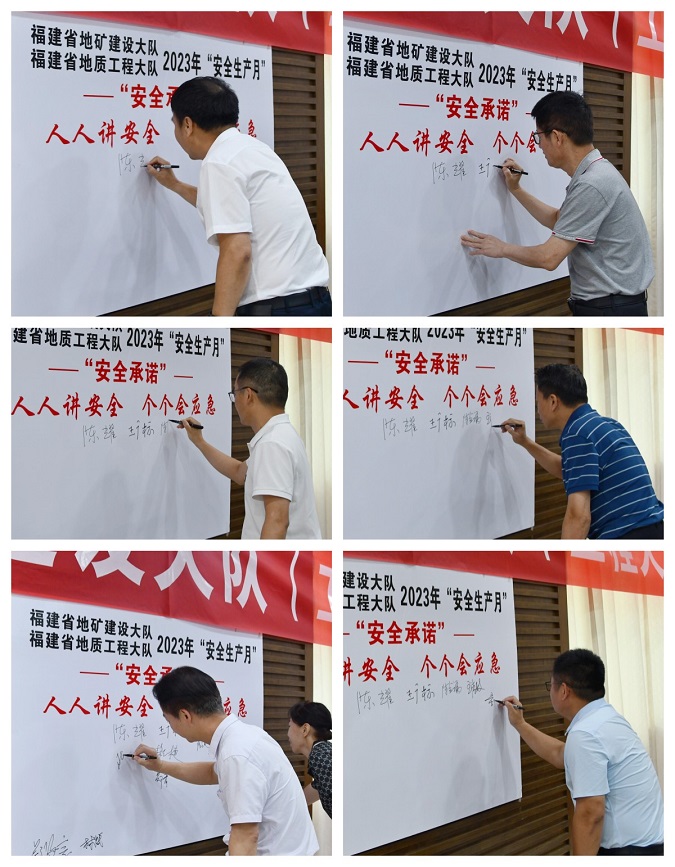 福建省地矿建设大队
福建省地质工程大队 2023年“安全生产月”
——“安全承
人人讲安全 急
陈
福建省地矿建设大队
福建省地质工程大队 2023年“安全生产月”
——“安全承诺”
人人讲安全 个个会
陈 耀
建省地质工程大队 2023年“安全生产月”
——“安全承诺”——
人人讲安全 个个会应急
陈 耀
地质工程大队 2023年“安全生产月”
——“安全承诺”——
人讲安全 个个会应急
陈 耀
建设大队（工
福建省地矿建设大队
福建省地质工程大队 2023年“安全生产月”
——“安全
人人讲安全 会应急
陈 耀
工程大
建设大队
工程大队 2023年“安全生产月”
“安全承诺”——
讲安全 个个会应急
陈 耀